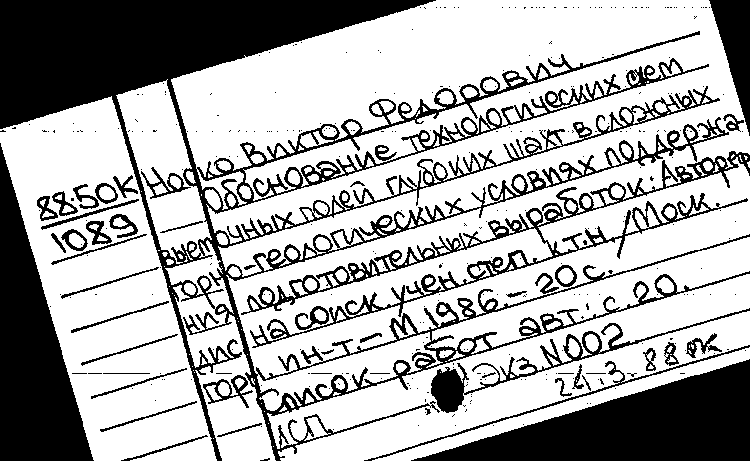 88:50К
1089
Носко, Виктор Федорович.
Обоснование технологических схем
выемочных полей глубоких шахт в сложных
горно-геологических условиях поддержа-
ния подготовительных выработок: Автореф
дис на соиск. учен. степ. к.т.н. /Моск.
горн. ин-т. - М. 1986. - 20 с.
Список работ авт.: с. 20.
ДСП. Экз. N002.
24.3.88